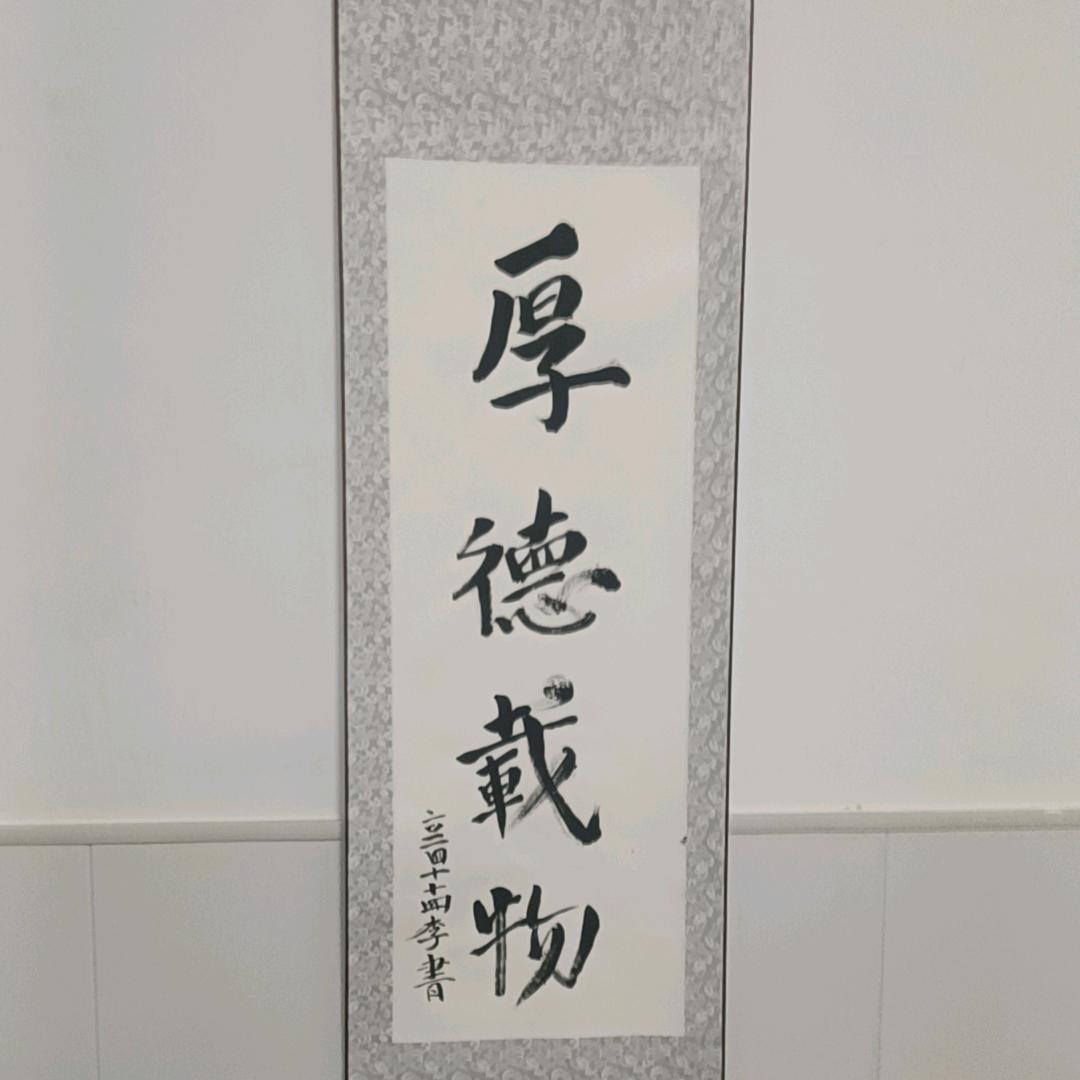 厚德載物
二〇二四十十四李書